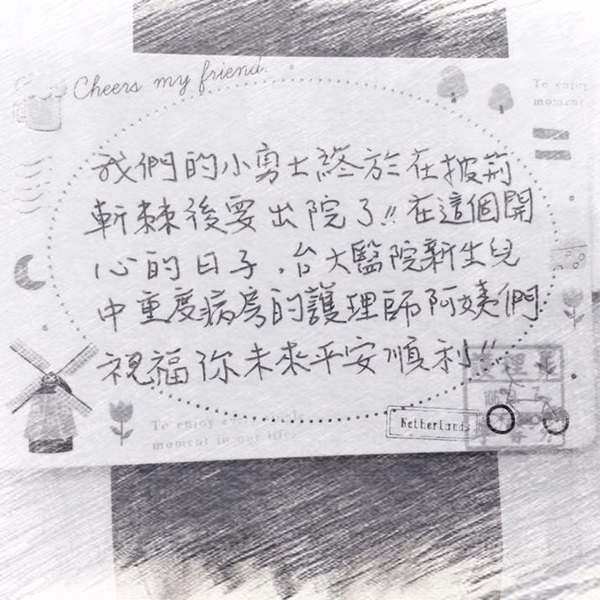 Cheers my friend.
To enjoy
moment
我們的小勇士終於在披荊
斬棘後要出院了!!在這個開
心的日子,台大醫院新生兒
中重度病房的護理師阿姨們
祝福你未來平安順利!!
To enjoy every
moment in our life.
Netherlands